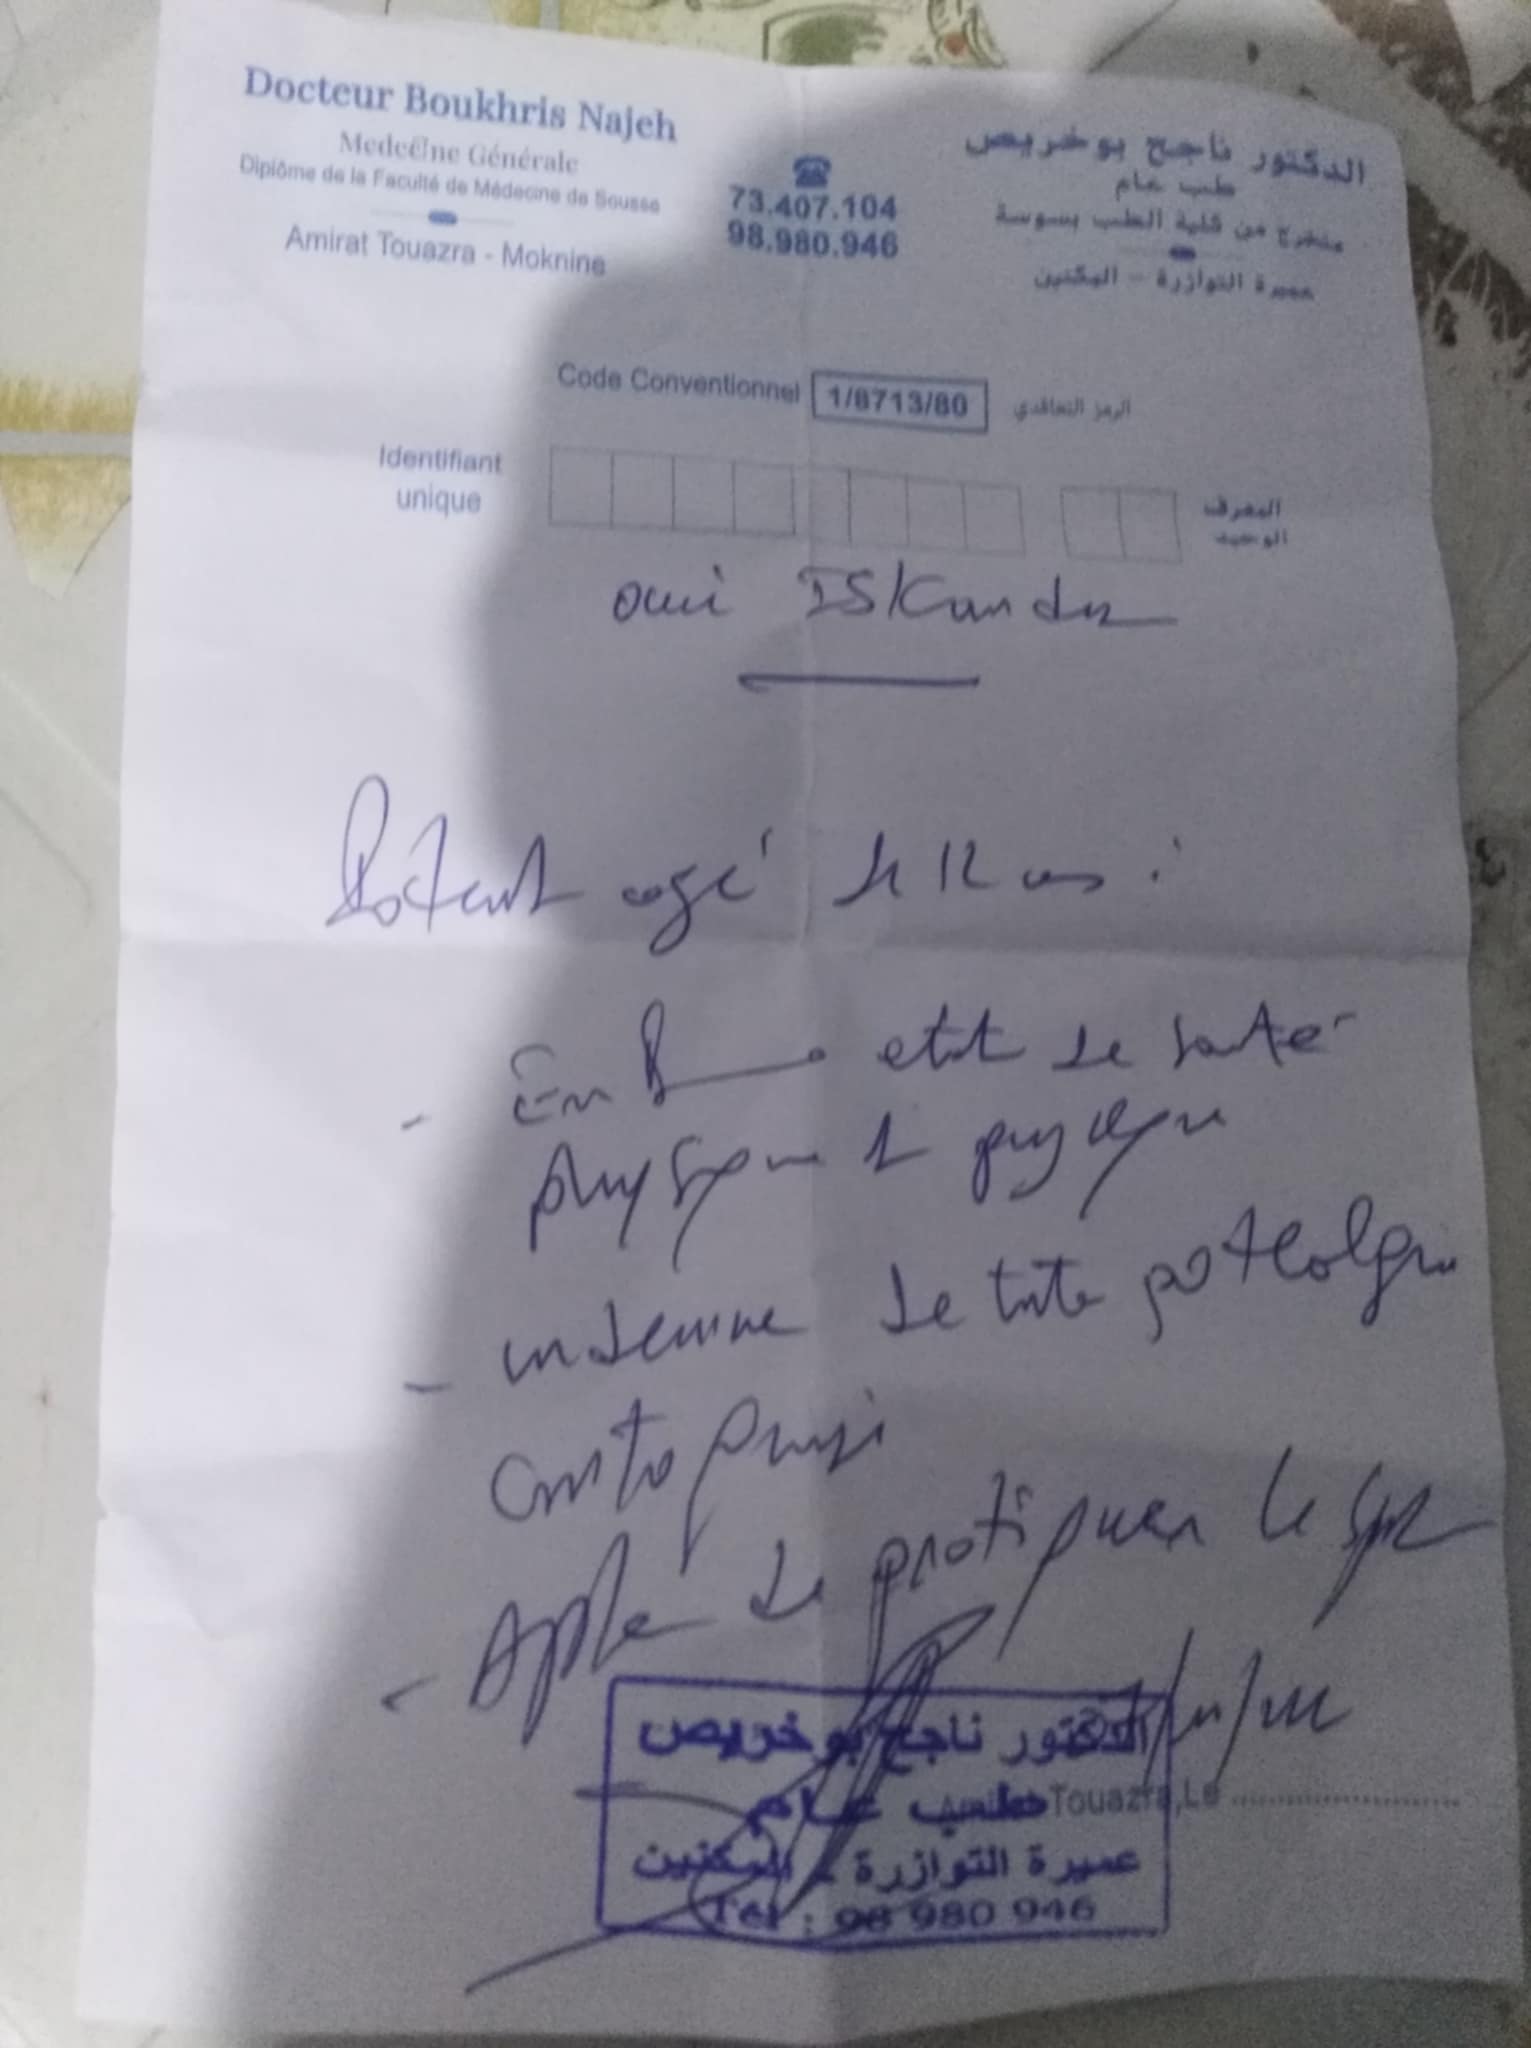 Docteur Boukhris Najeh
Medecine Générale
Diplôme de la Faculté de Médecine de Sousse
Amirat Touazra - Moknine
73.407.104
98.980.946
الدكتور ناجح بوخريص
طب عام
متخرج من كلية الطب بسوسة
عميرة التوازرة - المكنين
Code Conventionnel 1/8713/80 الرمز التعاقدي
Identifiant unique
المعرف الوحيد
Iskander
Patient agé de 12 ans :
- En Bonne etat de santé
physique et psychique
- indemne de toute pathologie
contagieuse
- Apte de pratiquer le sport
Amirat Touazra, Le
الدكتور ناجح بوخريص
طب عام
عميرة التوازرة - المكنين
Tel : 98 980 946